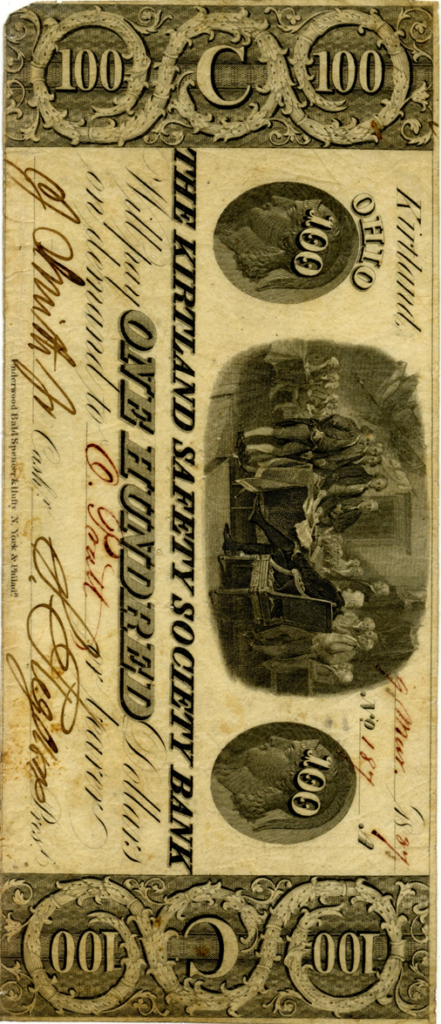 100 C 100
Kirtland,
OHIO
9 Mar. 1837
No. 187 A
100
100
THE KIRTLAND SAFETY SOCIETY BANK
Will pay ONE HUNDRED Dollars
on demand to O. Pratt or bearer
J Smith Jr Cashr. S. Rigdon Prest.
Underwood Bald Spencer & Hufty N. York & Philada.
100 C 100